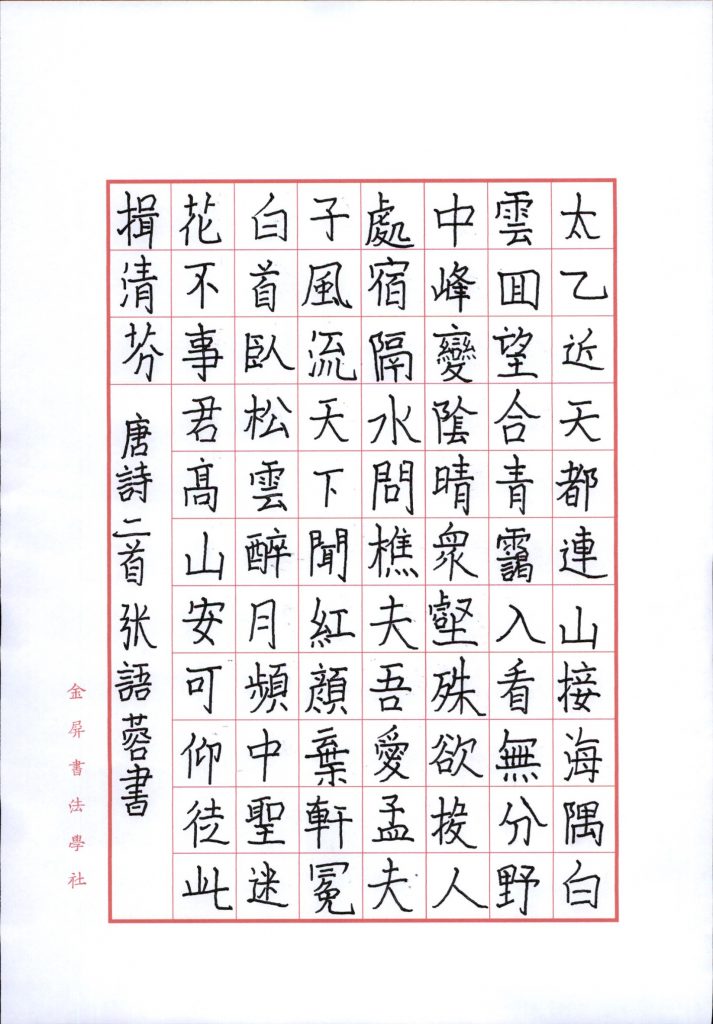 太乙近天都連山接海隅白
雲囬望合青靄入看無分野
中峰變陰晴衆壑殊欲投人
處宿隔水問樵夫吾愛孟夫
子風流天下聞紅顔棄軒冕
白首臥松雲醉月頻中聖迷
花不事君高山安可仰徒此
揖清芬
唐詩二首 张語蓉書
金屏書法學社